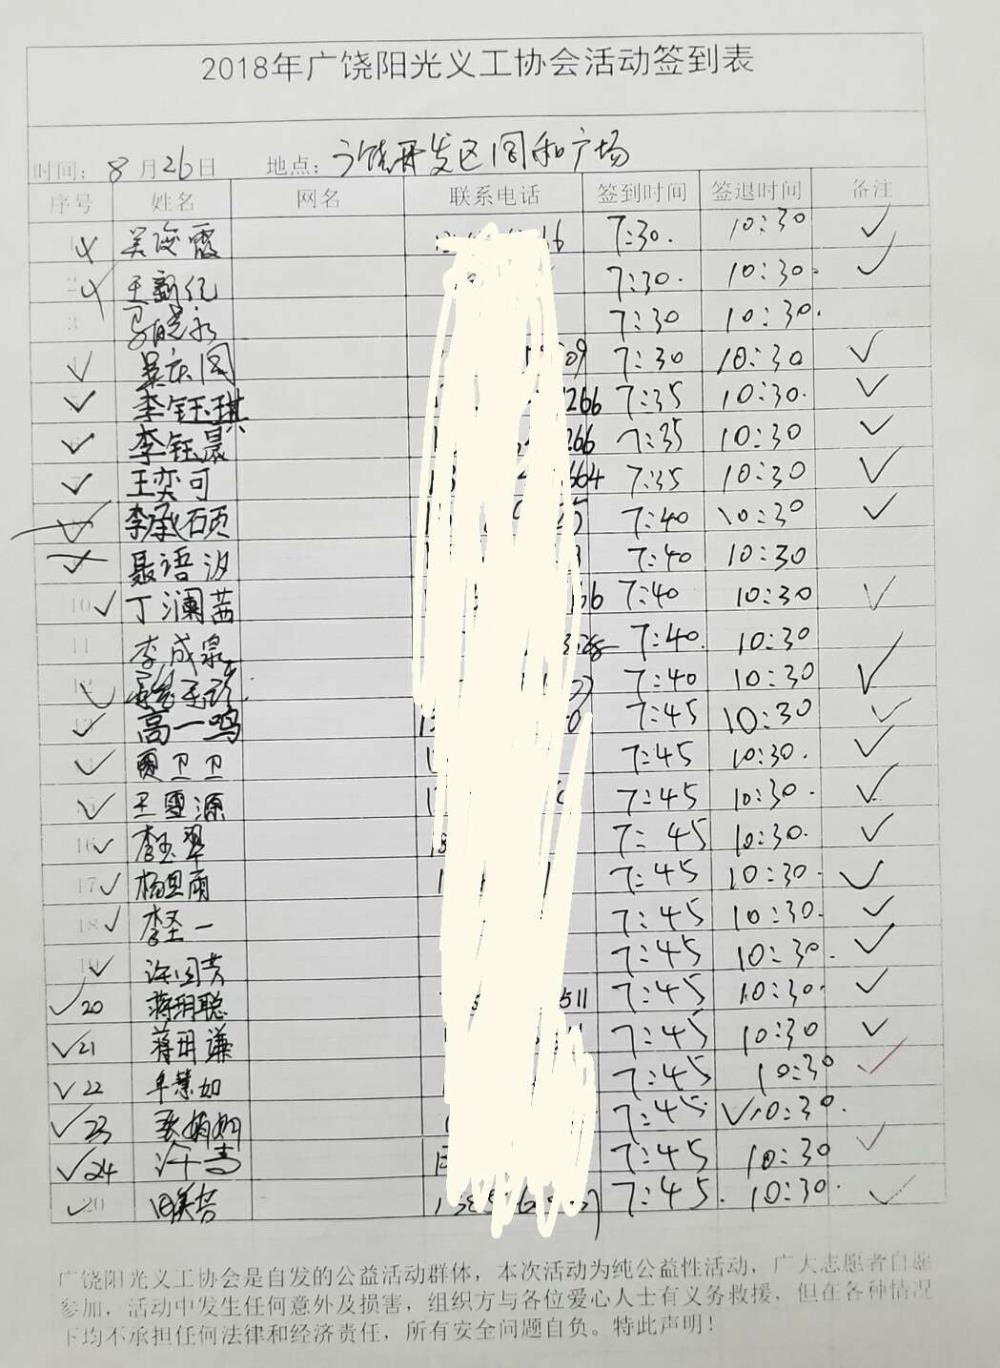 2018年广饶阳光义工协会活动签到表
时间：8月26日 地点：广饶开发区同和广场
序号 姓名 网名 联系电话 签到时间 签退时间 备注
吴海霞 7:30. 10:30 ✓
王新纪 7:30. 10:30. ✓
7:30 10:30.
✓ 吴庆国 09 7:30 10:30 ✓
✓ 李钰琪 266 7:35 10:30. ✓
✓ 李钰晨 266 7:35 10:30 ✓
7 ✓ 王奕可 664 7:35 10:30 ✓
✓ 李承硕 7:40 10:30 ✓
聂语汐 7:40 10:30
10 ✓ 丁澜茜 66 7:40 10:30 ✓
11 李成泉 7:40. 10:30
12 ✓ 7:40 10:30 ✓
13 ✓ 高一鸣 7:45 10:30 ✓
✓ 贾卫卫 7:45 10:30. ✓
✓ 王雪源 7:45 10:30. ✓
16 ✓ 李玉翠 7:45 10:30. ✓
17 ✓ 杨思雨 7:45 10:30. ✓
18 ✓ 李圣一 7:45 10:30. ✓
19 ✓ 许国芳 7:45 10:30. ✓
✓ 20 蒋玥聪 511 7:45 10:30. ✓
✓ 21 蒋玥谦 7:45 10:30 ✓
✓ 22 7:45 10:30 ✓
✓ 23 7:45 ✓10:30.
✓ 24 许青 7:45 10:30 ✓
✓ 20 田美芳 7:45. 10:30. ✓
广饶阳光义工协会是自发的公益活动群体，本次活动为纯公益性活动，广大志愿者自愿
参加，活动中发生任何意外及损害，组织方与各位爱心人士有义务救援，但在各种情况
下均不承担任何法律和经济责任，所有安全问题自负。特此声明！